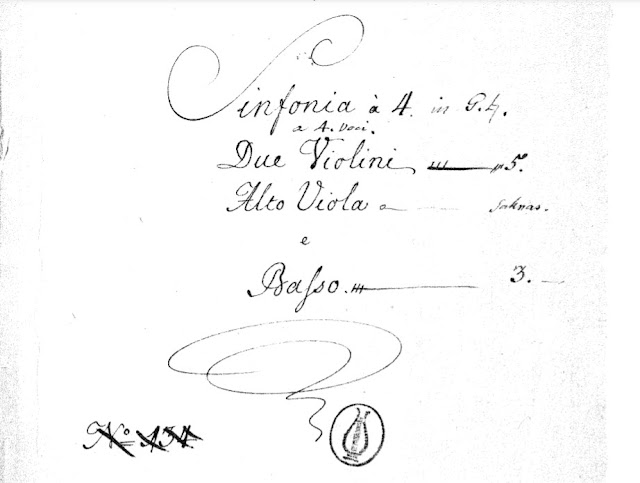 Sinfonia à 4. in G.♮.
a 4. Voci.
Due Violini 5.
Alto Viola Saknas.
e
Basso. 3.
No 134.